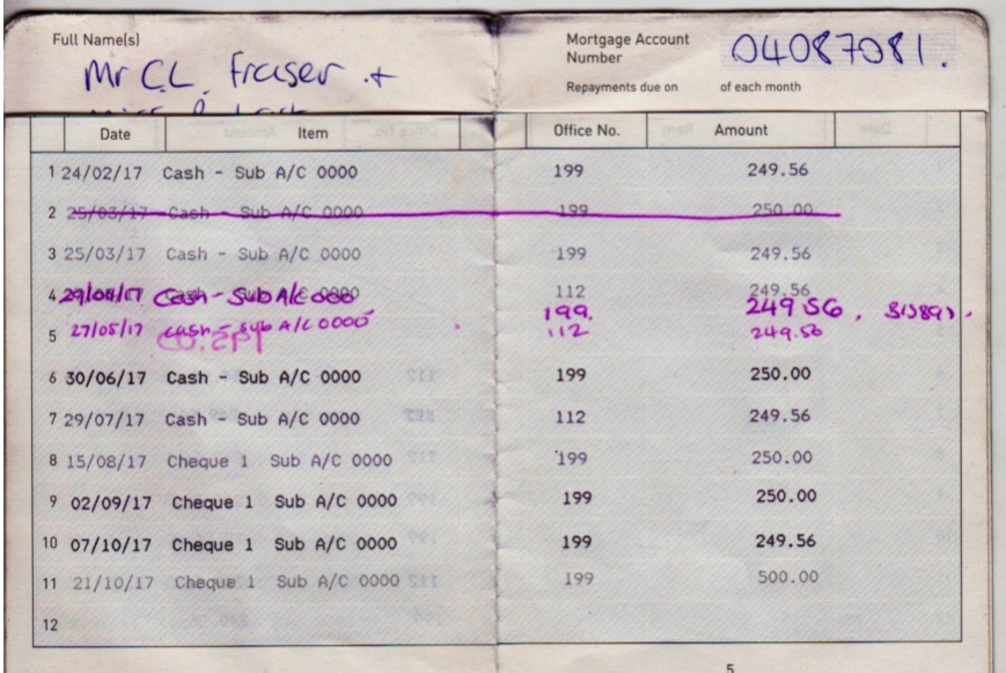 Full Name(s)
Mr C.L. Fraser +
Mortgage Account Number
04087081.
Repayments due on of each month
Date Item Office No. Amount
1 24/02/17 Cash - Sub A/C 0000 199 249.56
2 25/03/17 Cash - Sub A/C 0000 199 250.00
3 25/03/17 Cash - Sub A/C 0000 199 249.56
4 29/04/17 Cash - Sub A/c 000 112 249.56
199. 249 56.
5 27/05/17 cash - sub A/C 0000 112 249.56
6 30/06/17 Cash - Sub A/C 0000 199 250.00
7 29/07/17 Cash - Sub A/C 0000 112 249.56
8 15/08/17 Cheque 1 Sub A/C 0000 199 250.00
9 02/09/17 Cheque 1 Sub A/C 0000 199 250.00
10 07/10/17 Cheque 1 Sub A/C 0000 199 249.56
11 21/10/17 Cheque 1 Sub A/C 0000 199 500.00
12
5